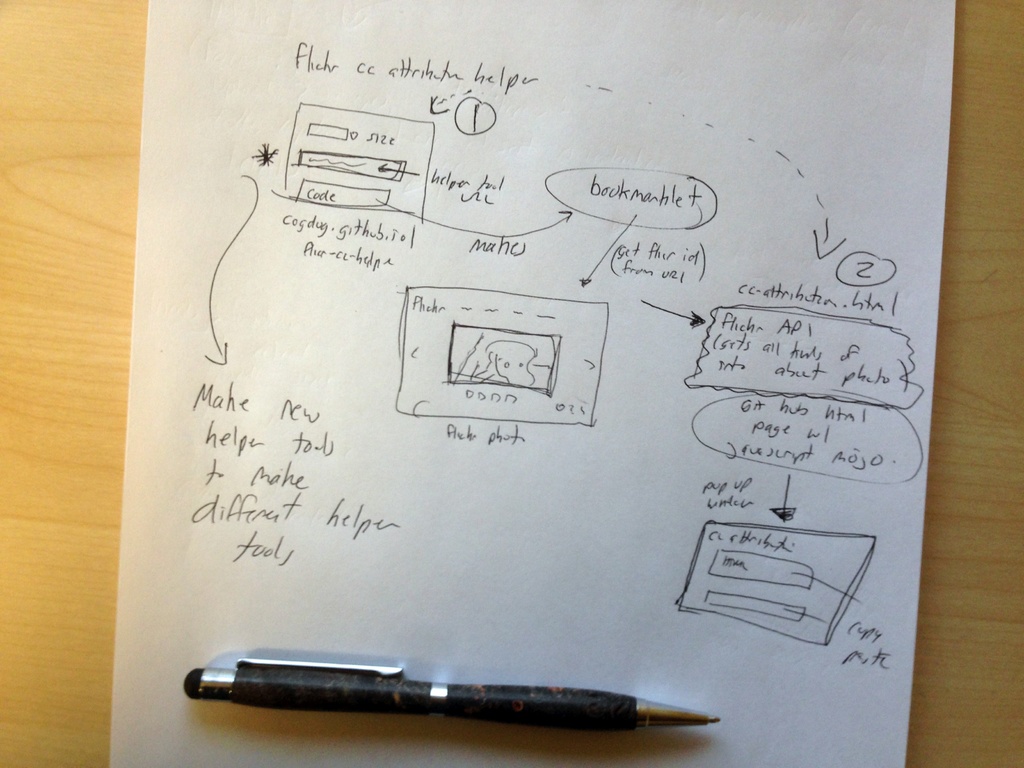 flickr cc attribution helper
1
SIZE
helper tool
URL
Code
cogdog.github.io/
flickr-cc-helper
makes
bookmarklet
(get flickr id
from URL)
2
cc-attribution.html
flickr API
(gets all kinds of
info about photo
Git hub html
page w/
javascript mojo.
flickr
flickr photo
pop up
window
cc attribution
html
copy
paste
*
Make new
helper tools
to make
different helper
tools